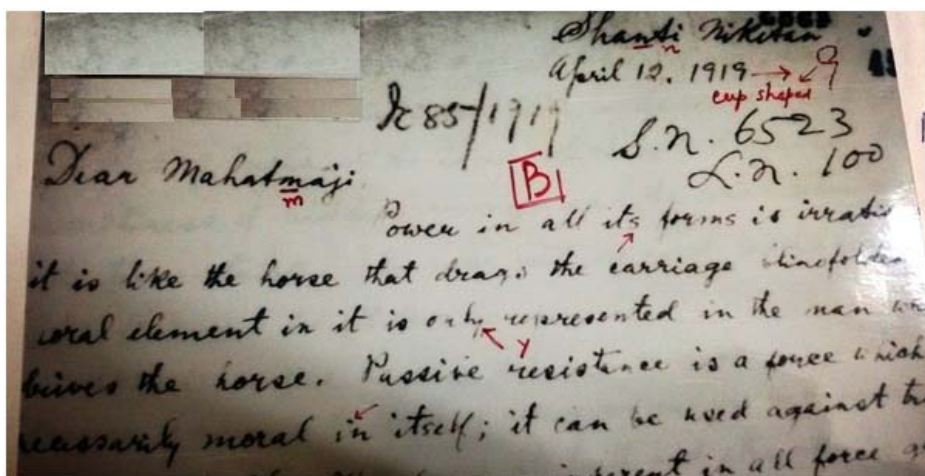 Shanti Niketan
n
April 12, 1919 → 9
cup shaped
Ic 85/1919
S.n. 6523
L.n. 100
Dear Mahatmaji
m
B
Power in all its forms is
it is like the horse that drags the carriage
element in it is only represented in the man
y
the horse. Passive resistance is a force which
moral in itself; it can be used against
in all force